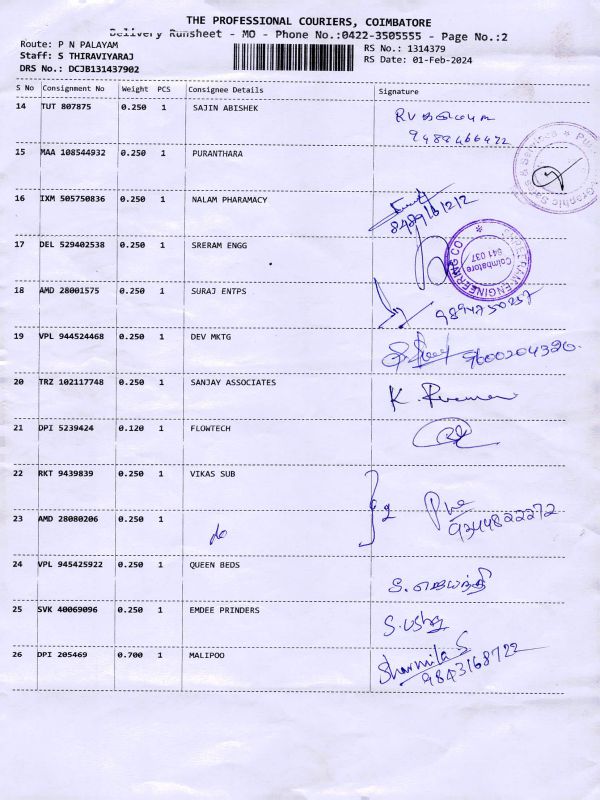 THE PROFESSIONAL COURIERS, COIMBATORE
Delivery Runsheet - MO - Phone No.:0422-3505555 - Page No.:2
Route: P N PALAYAM
Staff: S THIRAVIYARAJ
DRS No.: DCJB131437902
RS No.: 1314379
RS Date: 01-Feb-2024
S No Consignment No Weight PCS Consignee Details Signature
14 TUT 807875 0.250 1 SAJIN ABISHEK RV
9489466472
15 MAA 108544932 0.250 1 PURANTHARA
16 IXM 505750836 0.250 1 NALAM PHARAMACY
8489161212
17 DEL 529402538 0.250 1 SRERAM ENGG
SHREE RAM ENGINEERING CO.
Coimbatore
641 037
18 AMD 28001575 0.250 1 SURAJ ENTPS 9894750257
19 VPL 944524468 0.250 1 DEV MKTG 9600204320
20 TRZ 102117748 0.250 1 SANJAY ASSOCIATES K.
21 DPI 5239424 0.120 1 FLOWTECH
22 RKT 9439839 0.250 1 VIKAS SUB
23 AMD 28080206 0.250 1 do 2 9344822272
24 VPL 945425922 0.250 1 QUEEN BEDS S. ஜெயந்தி
25 SVK 40069096 0.250 1 EMDEE PRINDERS S. உஷா
26 DPI 205469 0.700 1 MALIPOO Sharmila S
9843168722